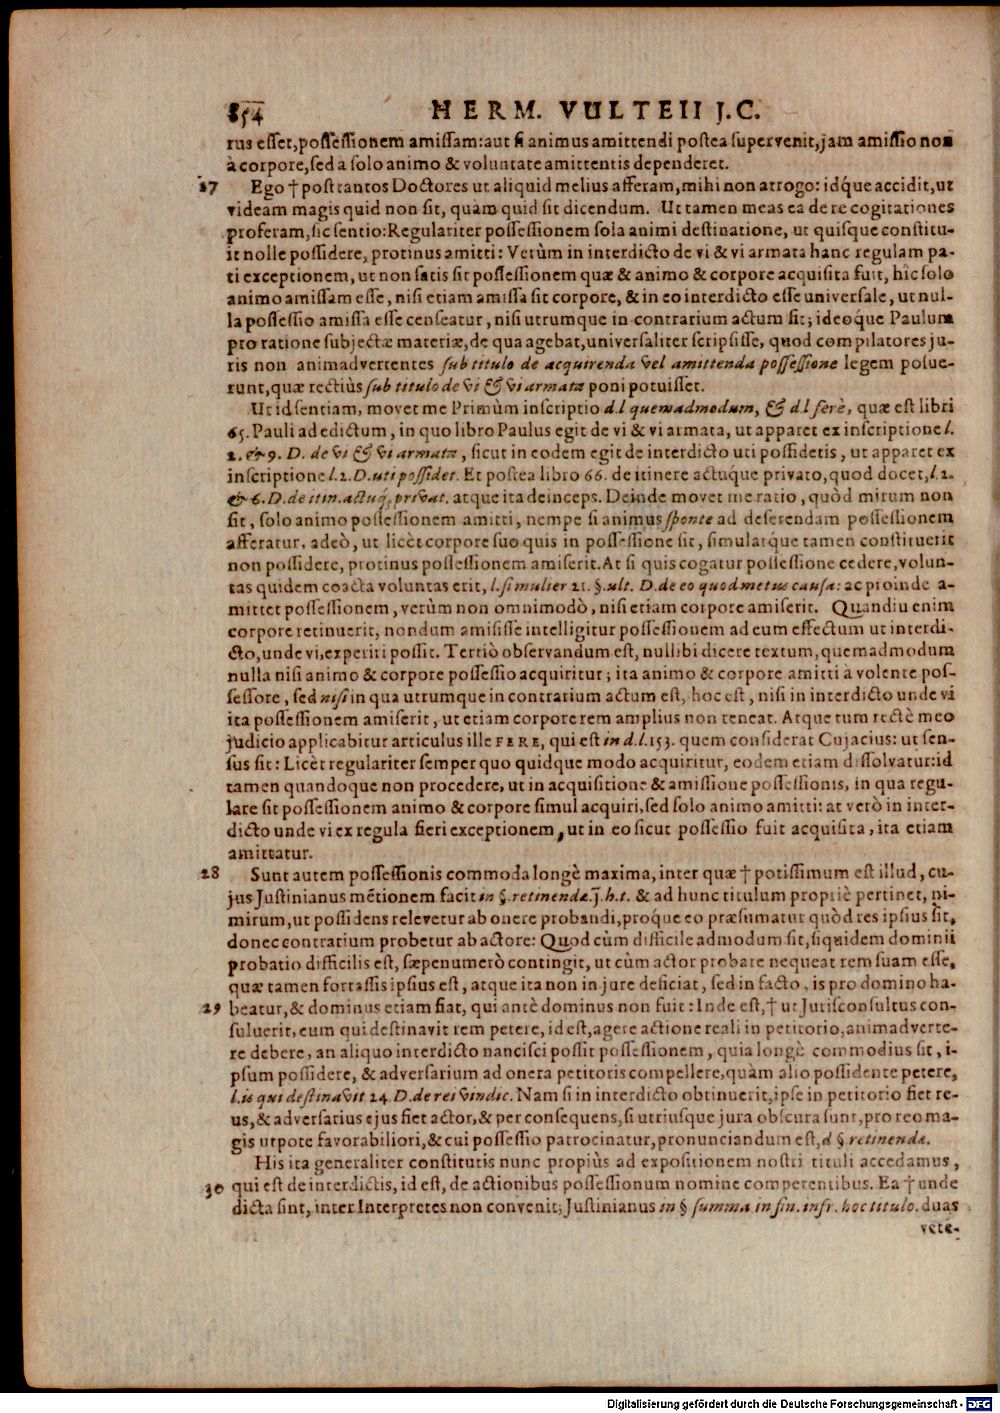 854 HERM. VULTEII J.C.
rus esset, possessionem amissam: aut si animus amittendi postea supervenit, jam amissio non
à corpore, sed à solo animo & voluntate amittentis dependeret.
27 Ego † post tantos Doctores ut aliquid melius afferam, mihi non arrogo: idq́ue accidit, ut
videam magis quid non sit, quàm quid sit dicendum. Ut tamen meas ea de re cogitationes
proferam, sic sentio: Regulariter possessionem sola animi destinatione, ut quisque constitu-
it nolle possidere, protinus amitti: Verùm in interdicto de vi & vi armata hanc regulam pa-
ti exceptionem, ut non satis sit possessionem quæ & animo & corpore acquisita fuit, hîc solo
animo amissam esse, nisi etiam amissa sit corpore, & in eo interdicto esse universale, ut nul-
la possessio amissa esse censeatur, nisi utrumque in contrarium actum sit; ideoque Paulum
pro ratione subjectæ materiæ, de qua agebat, universaliter scripsisse, quod compilatores ju-
ris non animadvertentes sub titulo de acquirenda vel amittenda possessione legem posue-
runt, quæ rectiùs sub titulo de vi & vi armata poni potuisset.
Ut id sentiam, movet me Primùm inscriptio d. l quemadmodum, & d. l ferè, quæ est libri
65. Pauli ad edictum, in quo libro Paulus egit de vi & vi armata, ut apparet ex inscriptione l.
2. & 9. D. de vi & vi armata, sicut in eodem egit de interdicto uti possidetis, ut apparet ex
inscriptione l. 2. D. uti possidet. Et postea libro 66. de itinere actuque privato, quod docet, l. 2.
& 6. D. de itin. actuq́; privat. atque ita deinceps. Deinde movet me ratio, quòd mirum non
sit, solo animo possessionem amitti, nempe si animus sponte ad deserendam possessionem
afferatur, adeò, ut licèt corpore suo quis in possessione sit, simulatque tamen constituerit
non possidere, protinus possessionem amiserit. At si quis cogatur possessione cedere, volun-
tas quidem coacta voluntas erit, l. si mulier 21. §. ult. D. de eo quod metus causa: ac proinde a-
mittet possessionem, verùm non omnimodò, nisi etiam corpore amiserit. Quandiu enim
corpore retinuerit, nondum amisisse intelligitur possessionem ad eum effectum ut interdi-
cto, unde vi, experiri possit. Tertiò observandum est, nullibi dicere textum, quemadmodum
nulla nisi animo & corpore possessio acquiritur; ita animo & corpore amitti à volente pos-
sessore, sed nisi in qua utrumque in contrarium actum est, hoc est, nisi in interdicto unde vi
ita possessionem amiserit, ut etiam corpore rem amplius non teneat. Atque tum rectè meo
judicio applicabitur articulus ille FERE, qui est in d. l. 153. quem considerat Cujacius: ut sen-
sus sit: Licèt regulariter semper quo quidque modo acquiritur, eodem etiam dissolvatur: id
tamen quandoque non procedere, ut in acquisitione & amissione possessionis, in qua regu-
lare sit possessionem animo & corpore simul acquiri, sed solo animo amitti: at verò in inter-
dicto unde vi ex regula fieri exceptionem, ut in eo sicut possessio fuit acquisita, ita etiam
amittatur.
28 Sunt autem possessionis commoda longè maxima, inter quæ † potissimum est illud, cu-
jus Justinianus mẽtionem facit in §. retinendæ. j. h. t. & ad hunc titulum propriè pertinet, ni-
mirum, ut possidens relevetur ab onere probandi, proque eo præsumatur quòd res ipsius sit,
donec contrarium probetur ab actore: Quod cùm difficile admodum sit, siquidem dominii
probatio difficilis est, sæpenumerò contingit, ut cùm actor probare nequeat rem suam esse,
quæ tamen fortassis ipsius est, atque ita non in jure deficiat, sed in facto, is pro domino ha-
29 beatur, & dominus etiam fiat, qui antè dominus non fuit: Inde est, † ut Jurisconsultus con-
suluerit, eum qui destinavit rem petere, id est, agere actione reali in petitorio, animadverte-
re debere, an aliquo interdicto nancisci possit possessionem, quia longè commodius sit, i-
psum possidere, & adversarium ad onera petitoris compellere, quàm alio possidente petere,
l. is qui destinavit 24. D. de rei vindic. Nam si in interdicto obtinuerit, ipse in petitorio fiet re-
us, & adversarius ejus fiet actor, & per consequens, si utriusque jura obscura sunt, pro reo ma-
gis utpote favorabiliori, & cui possessio patrocinatur, pronunciandum est, d §. retinendæ.
His ita generaliter constitutis nunc propiùs ad expositionem nostri tituli accedamus,
30 qui est de interdictis, id est, de actionibus possessionum nomine competentibus. Ea † unde
dicta sint, inter Interpretes non convenit; Justinianus in § summa in fin. infr. hoc titulo. duas
vete-
Digitalisierung gefördert durch die Deutsche Forschungsgemeinschaft - DFG